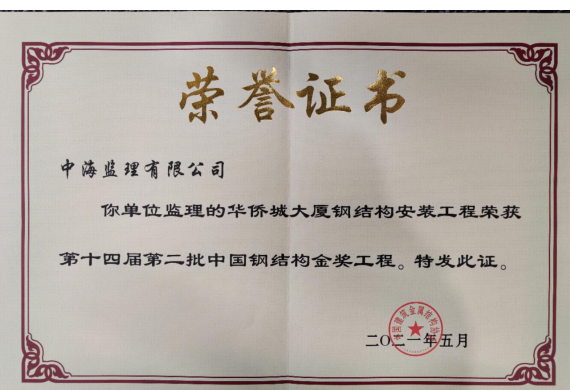 荣誉证书
中海监理有限公司
你单位监理的华侨城大厦钢结构安装工程荣获
第十四届第二批中国钢结构金奖工程。特发此证。
中国建筑金属结构协会
二〇二一年五月